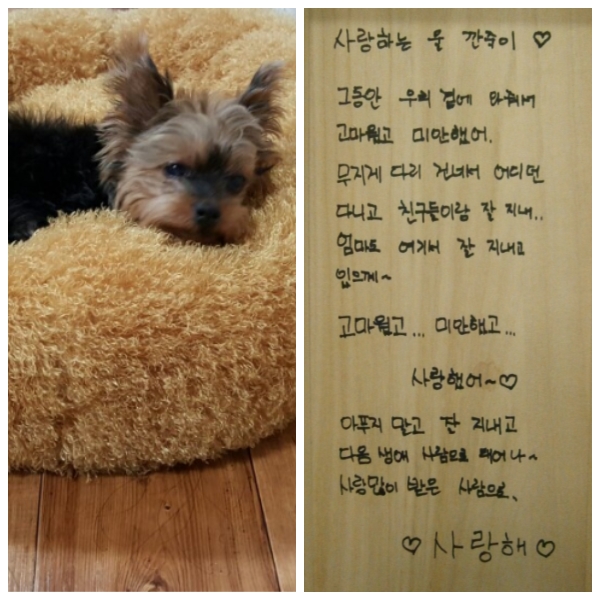 사랑하는 울 깐죽이 ♡
그동안 우리 곁에 와줘서
고마웠고 미안했어.
무지개 다리 건너서 어디던
다니고 친구들이랑 잘 지내..
엄마도 여기서 잘 지내고
있으께~
고마웠고... 미안했고...
사랑했어~♡
아푸지 말고 잘 지내고
다음 생애 사람으로 태어나~
사랑많이 받은 사람으로.
♡ 사랑해 ♡